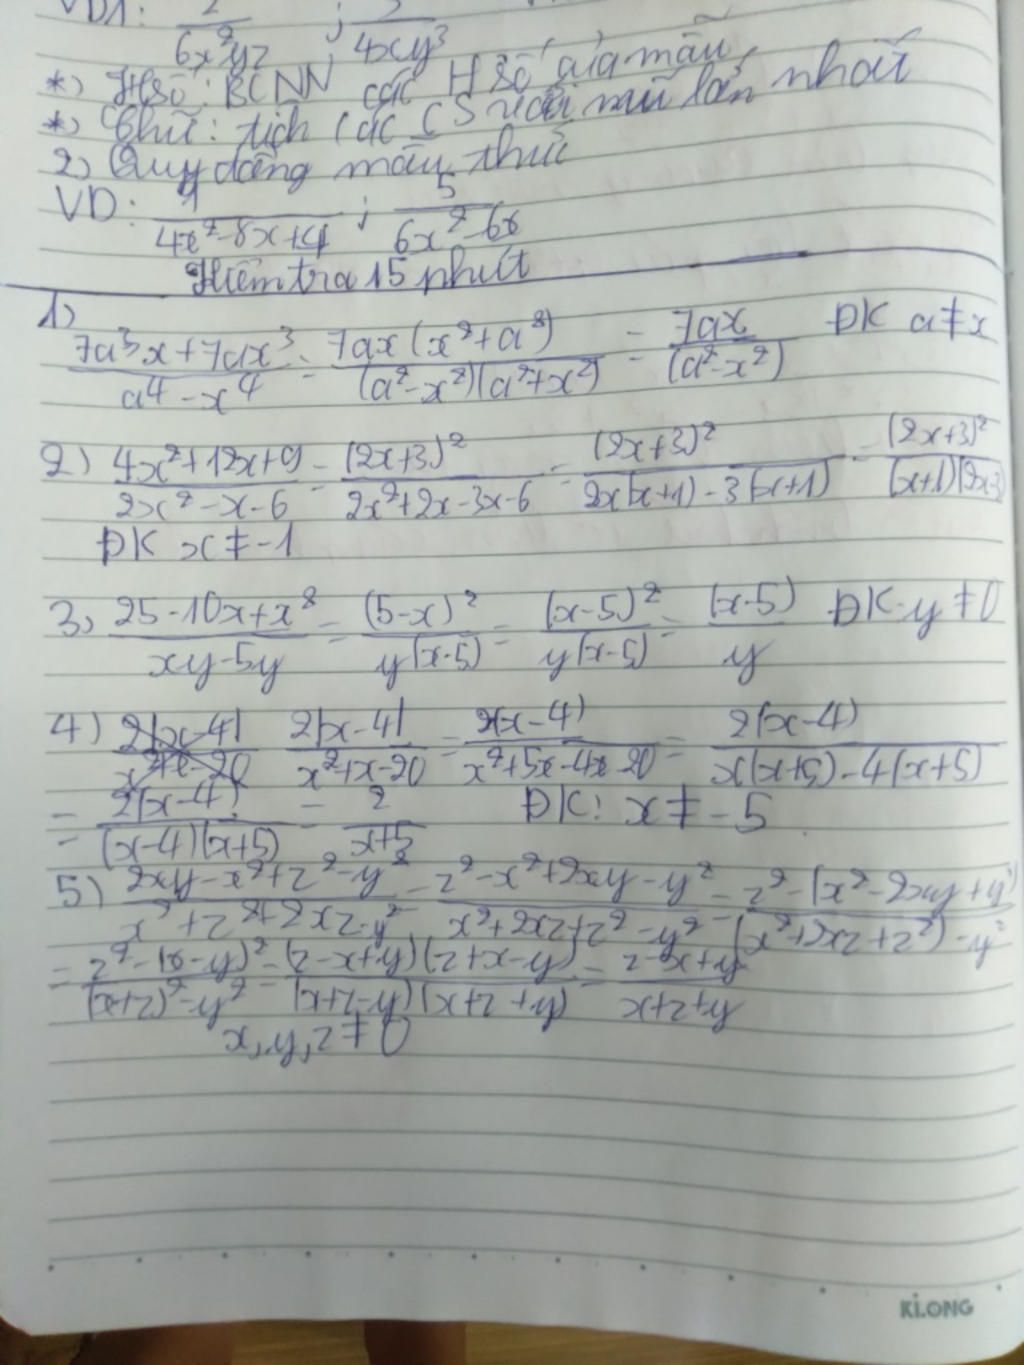 VD1: 2/(6x²yz) ; 5/(4xy³)
*) Hsố: BCNN các H số của mẫu
*) Chữ: tích các CS với mũ lớn nhất
2) Quy đồng mẫu thức
VD: 1/(4x²-8x+4) ; 5/(6x²-6x)
Kiểm tra 15 phút
1)
(7a³x+7ax³)/(a⁴-x⁴) = 7ax(x²+a²)/((a²-x²)(a²+x²)) = 7ax/(a²-x²) ĐK a≠x
2) (4x²+12x+9)/(2x²-x-6) = (2x+3)²/(2x²+2x-3x-6) = (2x+3)²/(2x(x+1)-3(x+1)) = (2x+3)²/((x+1)(2x-3)
ĐK x≠-1
3) (25-10x+x²)/(xy-5y) = (5-x)²/(y(x-5)) = (x-5)²/(y(x-5)) = (x-5)/y ĐK y≠0
4) 2(x-4)/(x²+x-20) 2(x-4)/(x²+x-20) = 2(x-4)/(x²+5x-4x-20) = 2(x-4)/(x(x+5)-4(x+5))
= 2(x-4)/((x-4)(x+5)) = 2/(x+5) ĐK: x≠-5
5) (2xy-x²+z²-y²)/(x²+z²+2xz-y²) = (z²-x²+2xy-y²)/(x²+2xz+z²-y²) = (z²-(x²-2xy+y²))/((x²+2xz+z²)-y²)
= (z²-(x-y)²)/((x+z)²-y²) = (z-x+y)(z+x-y)/((x+z-y)(x+z+y)) = (z-x+y)/(x+z+y)
x,y,z≠0
KLONG